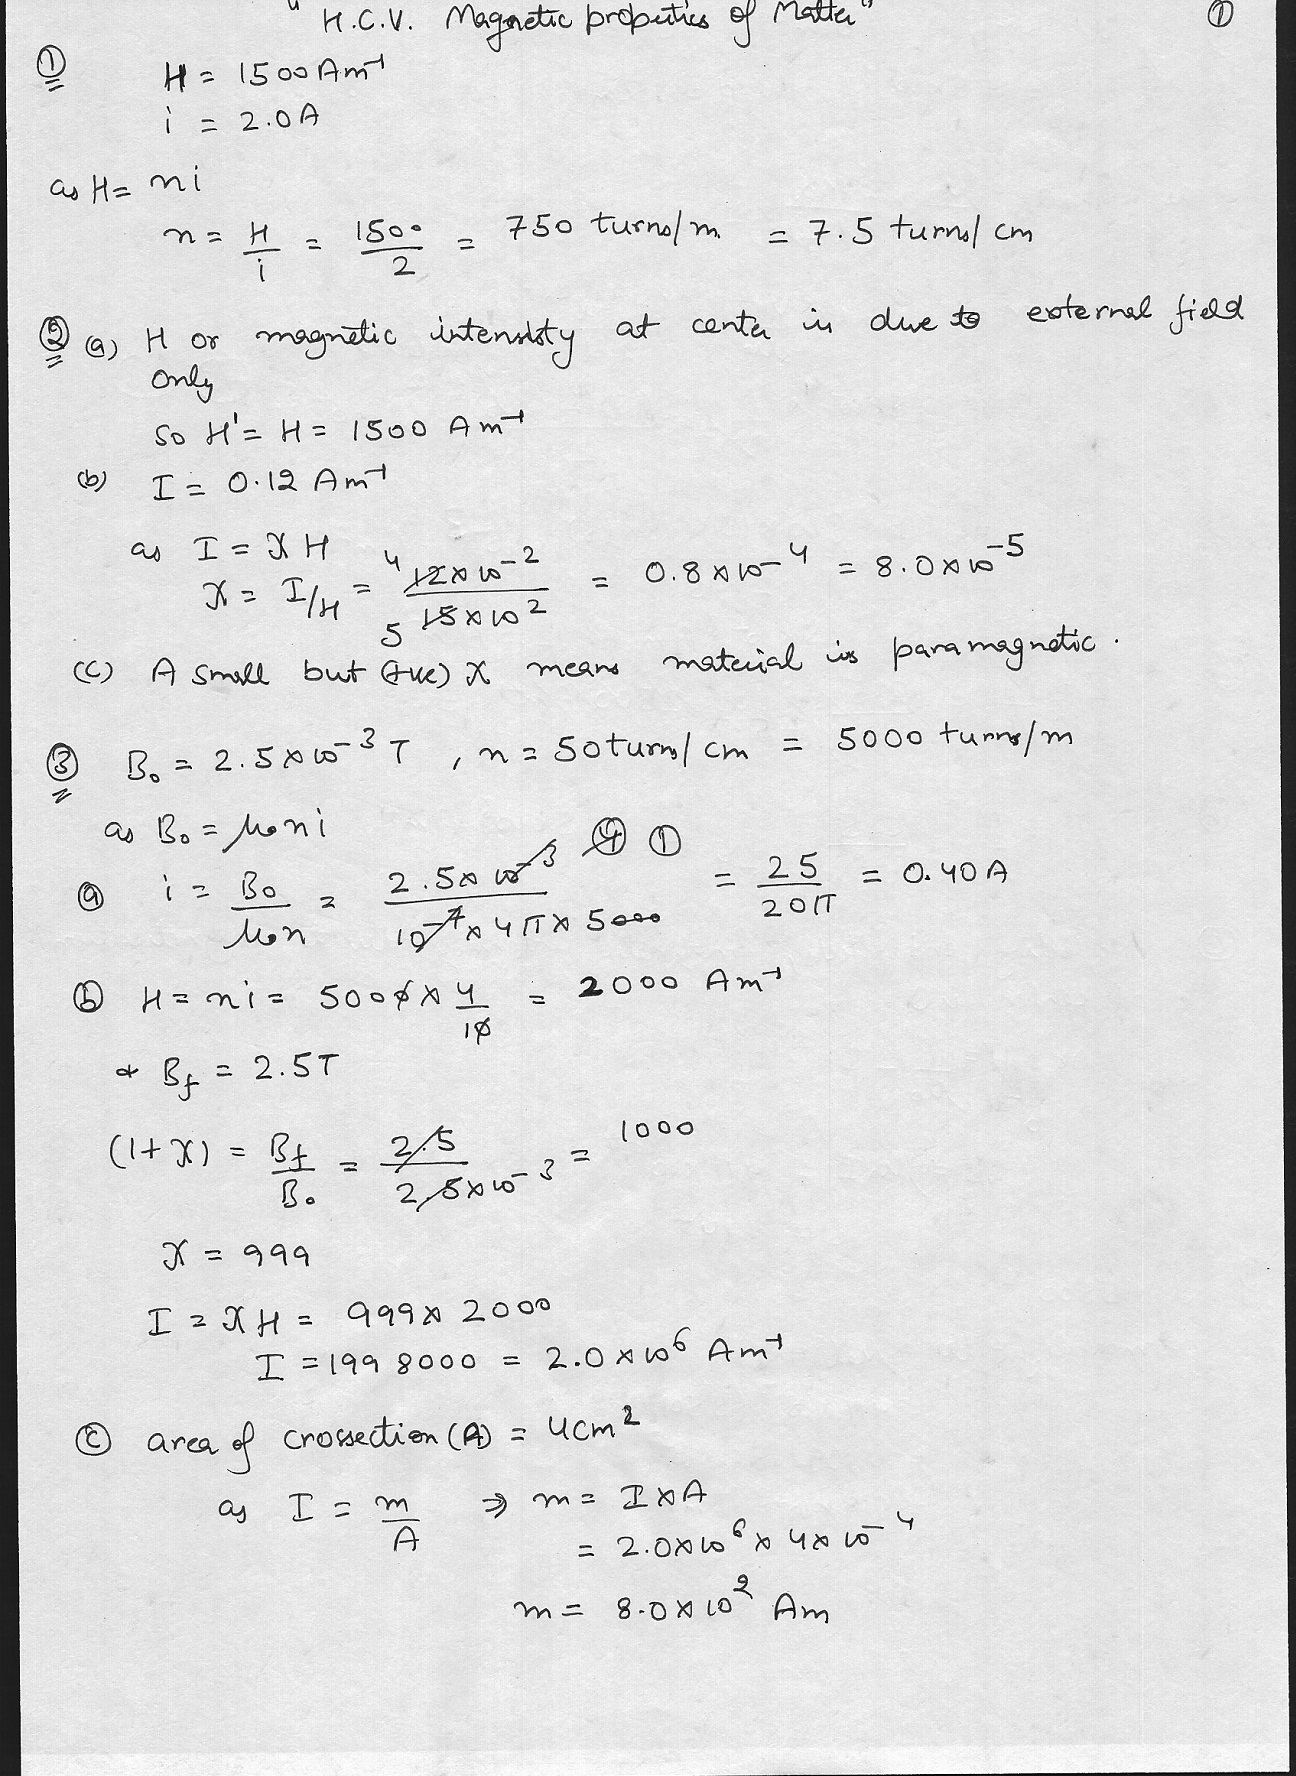 "H.C.V. Magnetic properties of Matter" ①
① H = 1500 Am⁻¹
i = 2.0A
as H = ni
n = H/i = 1500/2 = 750 turns/m = 7.5 turns/cm
② (a) H or magnetic intensity at center is due to external field
only
So H' = H = 1500 Am⁻¹
(b) I = 0.12 Am⁻¹
as I = χH
χ = I/H = 4 12×10⁻²/5 15×10² = 0.8×10⁻⁴ = 8.0×10⁻⁵
(c) A small but (+ve) χ means material is paramagnetic.
③ B₀ = 2.5×10⁻³ T, n = 50 turns/cm = 5000 turns/m
as B₀ = μ₀ni
ⓐ i = B₀/μ₀n = 2.5×10⁻³/10⁻⁷×4π×5000 ④ ① = 25/20π = 0.40A
ⓑ H = ni = 5000×4/10 = 2000 Am⁻¹
& Bf = 2.5T
(1+χ) = Bf/B₀ = 2.5/2.5×10⁻³ = 1000
χ = 999
I = χH = 999×2000
I = 1998000 = 2.0×10⁶ Am⁻¹
ⓒ area of crossection (A) = 4cm²
as I = m/A ⇒ m = I×A
= 2.0×10⁶×4×10⁻⁴
m = 8.0×10² Am